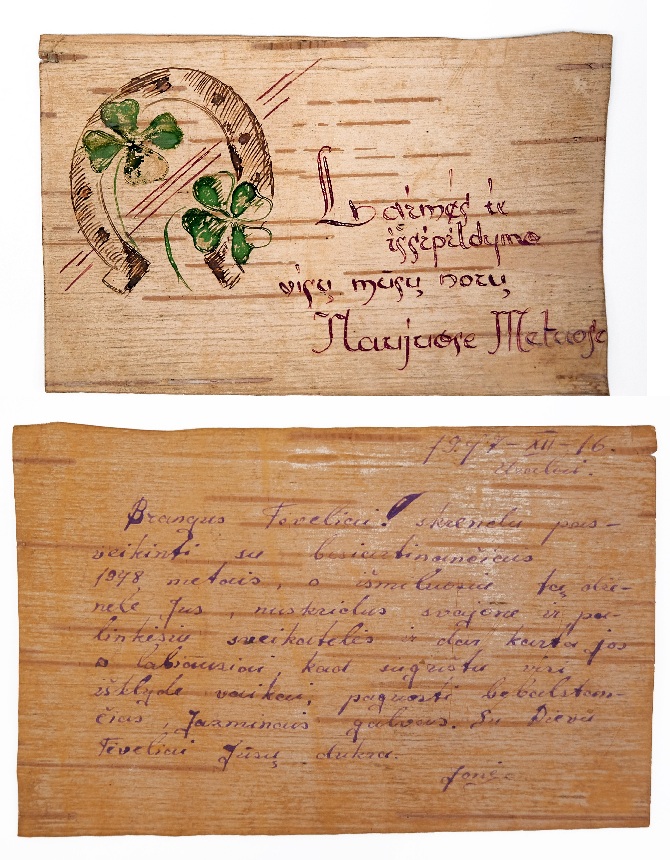 Laimės ir
išsipildymo
visų mūsų norų
Naujuose Metuose
1947-XII-16.
Brangus Teveliai! skrendu pas-
veikinti su besiartinančiais
1948 metais, o išmiluosiu tą die-
nelę Jus, nuskridus svajone ir pa-
linkėsiu sveikatėlės ir dar kartą jos
o labiausiai, kad sugrįstu visi
išklydę vaikai, paguosti bebalstan-
čias, Jazminais galvas. Su Dievu
Teveliai Jūsų dukra.